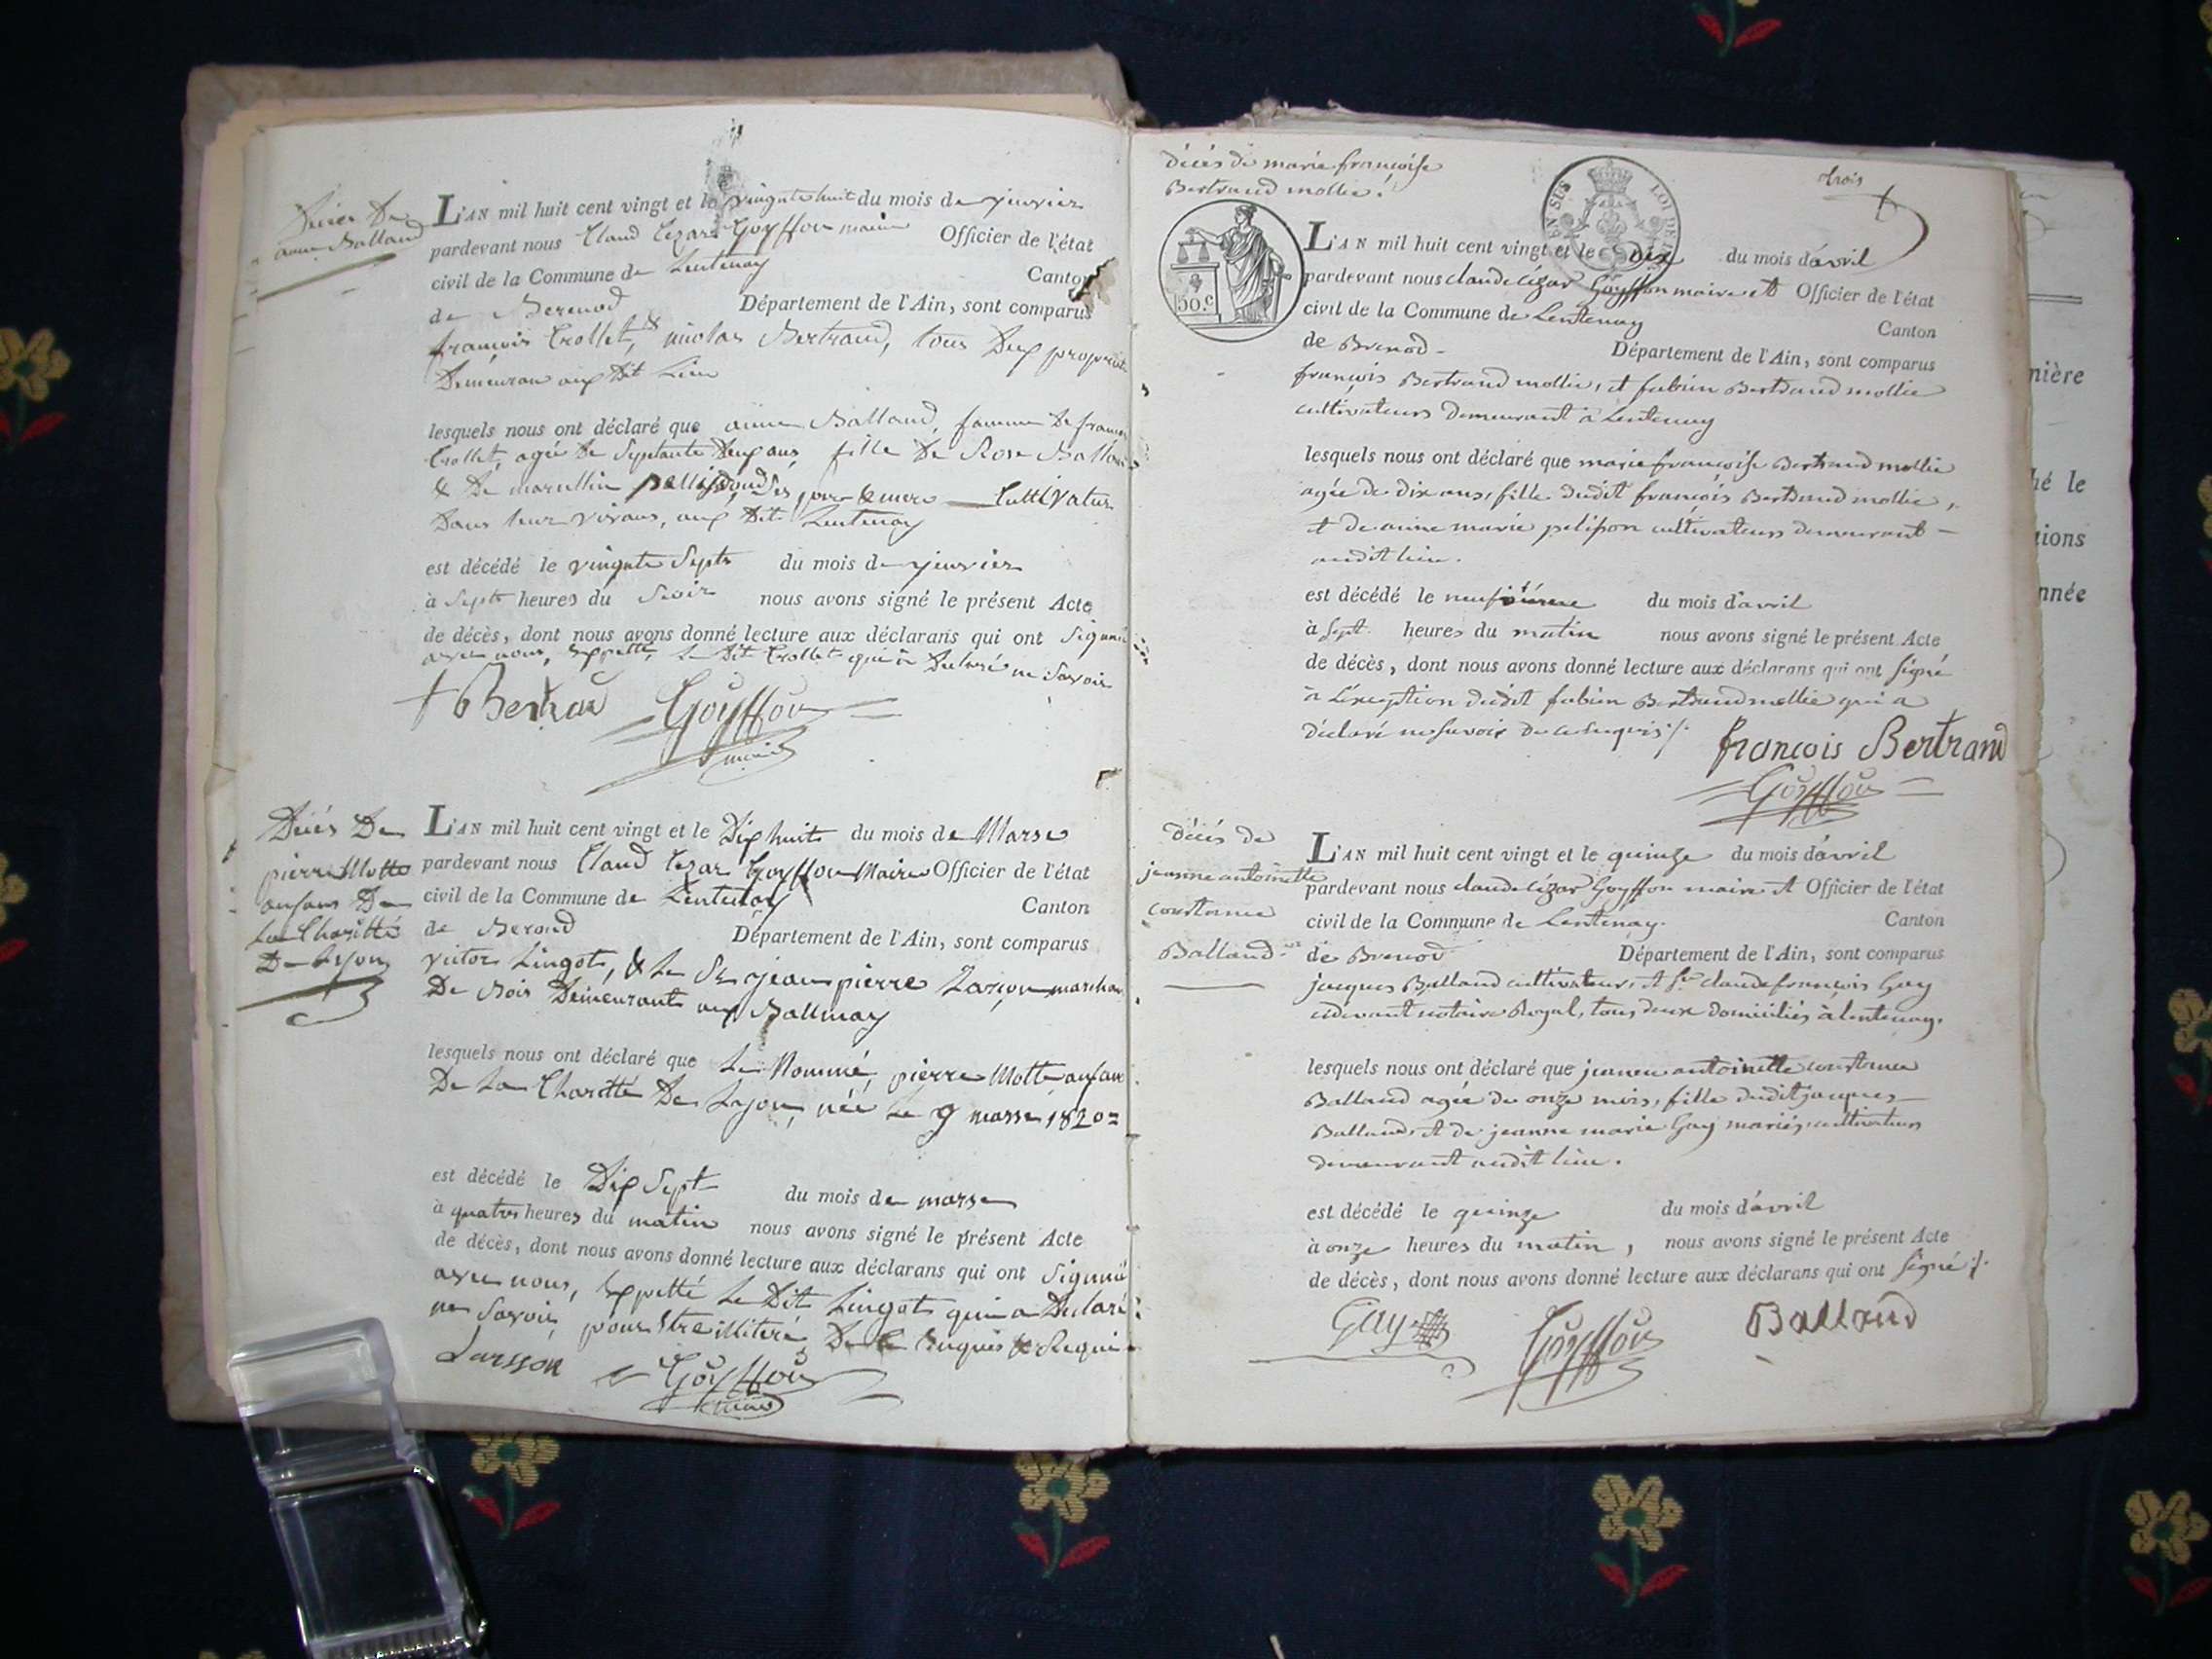 Décès De
anne Balland
L'AN mil huit cent vingt et le vingte huit du mois de jenvier
pardevant nous Claud Cezard Goyffon maire Officier de l'état
civil de la Commune de Lentenay Canton
de Berenod Département de l'Ain, sont comparus
francois Crollet, & nicolas Bertrand, tous Deux propriet
Demeuran aux Dit Lieu
lesquels nous ont déclaré que anne Balland, famme De francois
Crollet, agée De Septante Deux ans, fille De Rose Balland
& De
Dans leur vivans, aux Dit Lentenay
est décédé le vingte Septe du mois de jenvier
à Septe heures du Soir nous avons signé le présent Acte
de décès, dont nous avons donné lecture aux déclarans qui ont Signné
avec nous, Exppetté, Le Dit Crollet qui a Declaré ne Savoir
+ Bertrand Goyffon
maire
Décés De
pierre Motte
anfans De
La Charitté
De Lyon
L'AN mil huit cent vingt et le Dix huit du mois de Marse
pardevant nous Claud Cezar Goyffon Maire Officier de l'état
civil de la Commune de Lentenay Canton
de Berond Département de l'Ain, sont comparus
victor Lingot, & Le Sr jean pierre marchan
De Bois Demeurant aux Ballmay
lesquels nous ont déclaré que Le Nommé, pierre Motte anfan
De La Charitté De Lyon, née Le 9 marse 1820
est décédé le Dix Sept du mois de marse
à quatre heures du matin nous avons signé le présent Acte
de décès, dont nous avons donné lecture aux déclarans qui ont Signné
avec nous, Exppetté Le Dit Lingot qui a Declaré
ne Savoir pour Etre illiteré De Ce Enquis & Requi
Larsson Goyffon
maire
décés de marie françoise
Bertrand mollie.
trois
EN SUS LOI DE
50.c
L'AN mil huit cent vingt et le dix du mois d'avril
pardevant nous claude cézar Goyffon maire et Officier de l'état
civil de la Commune de Lentenay Canton
de Brenod Département de l'Ain, sont comparus
françois Bertrand mollie, et fabien Bertrand mollie
cultivateurs demeurant à Lentenay
lesquels nous ont déclaré que marie françoise Bertrand mollie
agée de dix ans, fille dudit françois Bertrand mollie,
et de anne marie pelisson cultivateurs demeurant
audit lieu.
est décédé le neufvième du mois d'avril
à Sept heures du matin nous avons signé le présent Acte
de décès, dont nous avons donné lecture aux déclarans qui ont signé
à L'éxeption dudit fabien Bertrand mollie qui a
déclaré ne savoir de ce enquis /.
françois Bertrand
Goyffon
décés de
jeanne antoinette
constance
Balland.
L'AN mil huit cent vingt et le quinze du mois d'avril
pardevant nous claude cézar Goyffon maire et Officier de l'état
civil de la Commune de Lentenay. Canton
de Brenod Département de l'Ain, sont comparus
jacques Balland cultivateur, et Sr claude françois Guy
cidevant notaire Royal, tous deux domiciliés à lentenay.
lesquels nous ont déclaré que jeanne antoinette constance
Balland agée de onze mois, fille dudit jacques
Balland, et de jeanne marie Guy mariés cultivateurs
demeurant audit lieu.
est décédé le quinze du mois d'avril
à onze heures du matin, nous avons signé le présent Acte
de décès, dont nous avons donné lecture aux déclarans qui ont signé /.
Guy Goyffon Balland
nière
hé le
ions
nnée